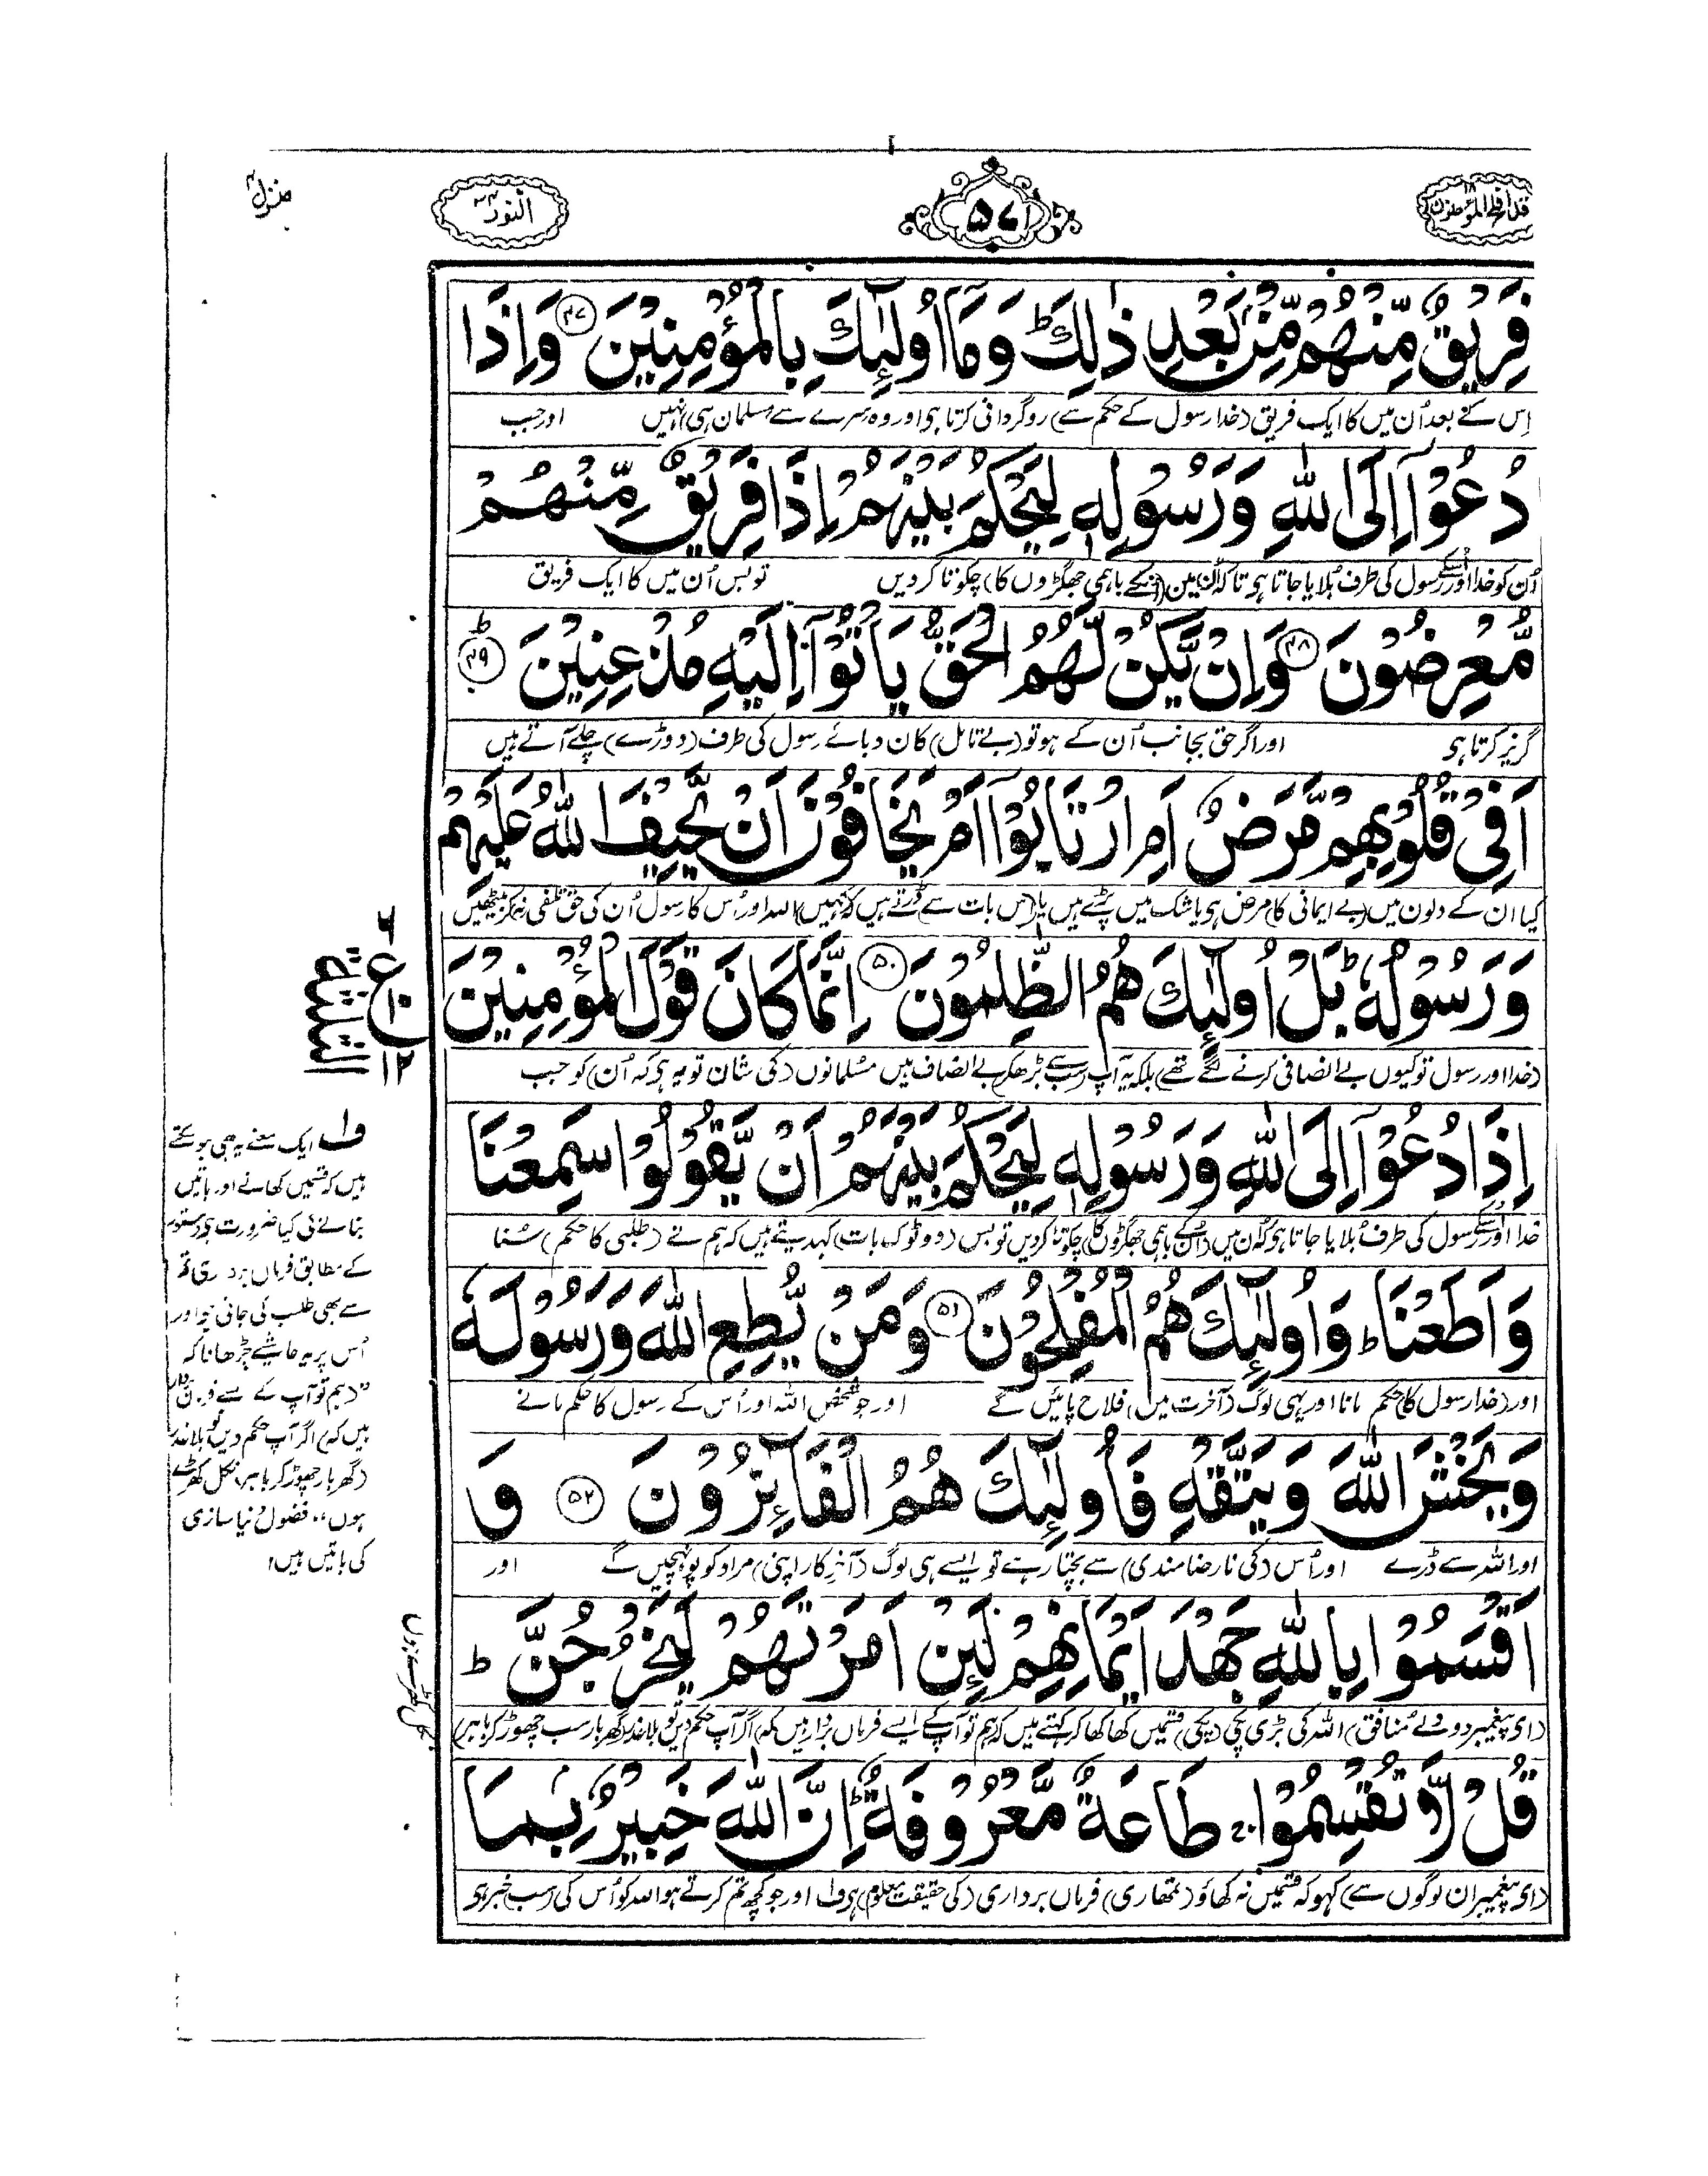 قد افلح المؤمنون ۱۸
۵۷۱
النور ۲۴
منزل ۴
فَرِيْقٌ مِّنْهُمْ مِّنْۢ بَعْدِ ذٰلِكَ ؕ وَمَاۤ اُولٰٓئِكَ بِالْمُؤْمِنِيْنَ ۴۷ وَاِذَا
اِس کے بعد اُن میں کا ایک فریق (خدا رسول کے حکم سے) روگردانی کرتا ہی اور وہ سرے سے مسلمان ہی نہیں اور جب
دُعُوْۤا اِلَى اللّٰهِ وَرَسُوْلِهٖ لِيَحْكُمَ بَيْنَهُمْ اِذَا فَرِيْقٌ مِّنْهُمْ
اُن کو خدا اور اُسکے رسول کی طرف بُلایا جاتا ہی تاکہ اُن میں (اُنکے باہمی جھگڑوں کا) چکوتا کردیں تو بس اُن میں کا ایک فریق
مُّعْرِضُوْنَ ۴۸ وَاِنْ يَّكُنْ لَّهُمُ الْحَقُّ يَاْتُوْۤا اِلَيْهِ مُذْعِنِيْنَ ؕ ۴۹
گریز کرتا ہی اور اگر حق بجانب اُن کے ہو تو (بے تامل) کان دبائے رسول کی طرف (دوڑے) چلے آتے ہیں
اَفِيْ قُلُوْبِهِمْ مَّرَضٌ اَمِ ارْتَابُوْۤا اَمْ يَخَافُوْنَ اَنْ يَّحِيْفَ اللّٰهُ عَلَيْهِمْ
کیا ان کے دلوں میں (بے ایمانی کا) مرض ہی یا شک میں پڑے ہیں یا (اس بات سے) ڈرتے ہیں کہ (کہیں) اللہ اور اُس کا رسول اُن کی حق تلفی نہ کر بیٹھیں
وَرَسُوْلُهٗ ؕ بَلْ اُولٰٓئِكَ هُمُ الظّٰلِمُوْنَ ۵۰ اِنَّمَا كَانَ قَوْلَ الْمُؤْمِنِيْنَ
(خدا اور رسول تو کیوں بے انصافی کرنے لگے تھے) بلکہ یہ آپ (سب سے بڑھکر) بے انصاف ہیں مسلمانوں (کی شان تو یہ ہی کہ اُن) کو جب
اِذَا دُعُوْۤا اِلَى اللّٰهِ وَرَسُوْلِهٖ لِيَحْكُمَ بَيْنَهُمْ اَنْ يَّقُوْلُوْا سَمِعْنَا
خدا اور اُسکے رسول کی طرف بُلایا جاتا ہی کہ اُن میں (اُنکے باہمی جھگڑوں کا) چکوتا کردیں تو بس (دو ٹوک بات) کہدیتے ہیں کہ ہم نے (طلبی کا حکم) سُنا
وَاَطَعْنَا ؕ وَاُولٰٓئِكَ هُمُ الْمُفْلِحُوْنَ ۵۱ وَمَنْ يُّطِعِ اللّٰهَ وَرَسُوْلَهٗ
اور (خدا رسول کا) حکم مانا اور یہی لوگ (آخرت میں) فلاح پائیں گے اور جو شخص اللہ اور اُس کے رسول کا حکم مانے
وَيَخْشَ اللّٰهَ وَيَتَّقْهِ فَاُولٰٓئِكَ هُمُ الْفَآئِزُوْنَ ۵۲ وَ
اور اللہ سے ڈرے اور اُس (کی نارضامندی) سے بچتا رہے تو ایسے ہی لوگ (آخر کار اپنی) مراد کو پونہچیں گے اور
اَقْسَمُوْا بِاللّٰهِ جَهْدَ اَيْمَانِهِمْ لَئِنْ اَمَرْتَهُمْ لَيَخْرُجُنَّ ؕ
(ای پیغمبر دو دلے مُنافق) اللہ کی بڑی پکی (پکی) قسمیں کھا کھا کر کہتے ہیں کہ (ہم تو آپ کے ایسے فرماں بردار ہیں کہ) اگر آپ حکم دیں تو بلا عذر (گھر بار سب چھوڑ کر باہر)
قُلْ لَّا تُقْسِمُوْا ۚ طَاعَةٌ مَّعْرُوْفَةٌ ؕ اِنَّ اللّٰهَ خَبِيْرٌۢ بِمَا
(ای پیغمبر ان لوگوں سے) کہو کہ قسمیں نہ کھاؤ (تمھاری) فرماں برداری (کی حقیقت معلوم) ہی ف۱ اور جو کچھ تم کرتے ہو اللہ کو اُس کی (سب) خبر ہی
۶
ع ۱۰
۱۲
ف۱ ایک معنے یہ بھی ہو سکتے
ہیں کہ قسمیں کھانے اور باتیں
بنانے کی کیا ضرورت ہی دستور
کے مطابق فرماں برداری تم
سے بھی طلب کی جاتی ہی اور
اُس پر یہ حاشیے چڑھانا کہ
"(ہم تو آپ کے
ہیں کہ) اگر آپ حکم دیں تو بلا عذر
(گھر بار چھوڑ کر باہر) نکل کھڑے
ہوں" فضول دنیا سازی
کی باتیں ہیں۱